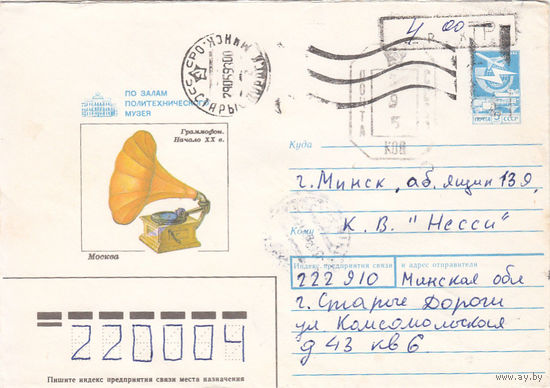 ПО ЗАЛАМ
ПОЛИТЕХНИЧЕСКОГО
МУЗЕЯ
Граммофон.
Начало XX в.
Москва
4 00
ПОЧТА СССР
Куда
г. Минск, аб. ящик 139,
Кому
К. В. "Несси"
Индекс предприятия связи и адрес отправителя
222910 Минская обл
г. Старые Дороги
ул. Комсомольская
д 43 кв 6
220004
Пишите индекс предприятия связи места назначения
www.ay.by